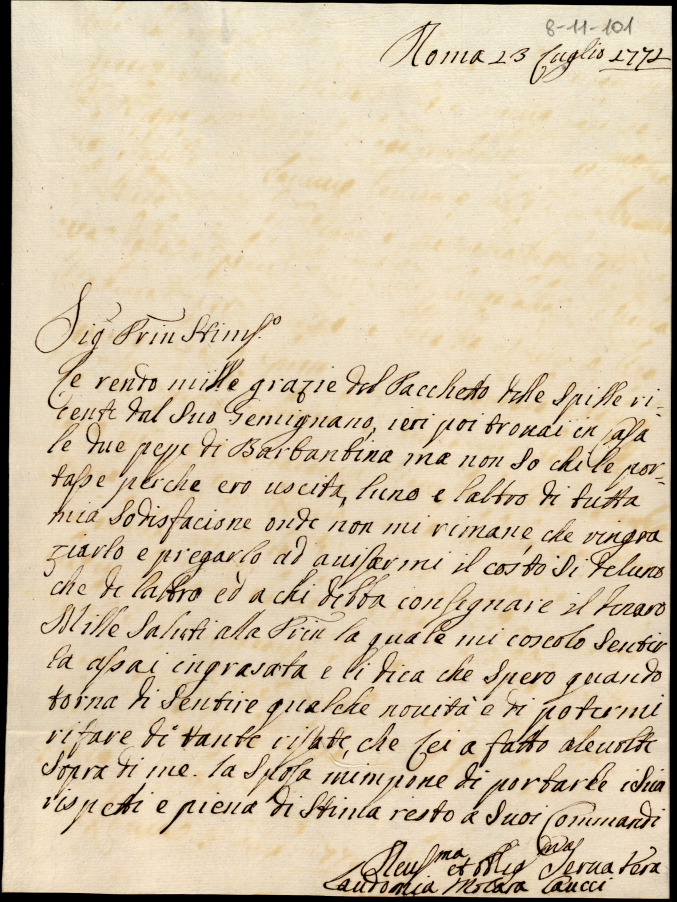 8-11-101
Roma 23 Luglio 1772
Sig Prin Stimo
Le rendo mille grazie del Pacchetto delle Spille ri-
cente dal Suo Gemignano, ieri poi trovai in casa
le due peze di Barbantina ma non so chi le por-
tasse perche ero uscita, luno e laltro di tutta
mia Sodisfacione onde non mi rimane, che ringra
ziarlo e pregarlo ad avisarmi il costo Si deluno
che de laltro ed a chi debba consignare il denaro
Mille Saluti alla Prin la quale mi coscolo Sentir
la assai ingrasata e li dica che spero quando
torna di Sentire qualche novità e di potermi
rifare di tante risate, che Lei a fatto alevolte
Sopra di me. la Sposa mimpone di portarle i Sua
rispetti e piena di Stima resto a Suoi Commandi
Devma et obligma Serva Vera
Laudomia Molara Caucci